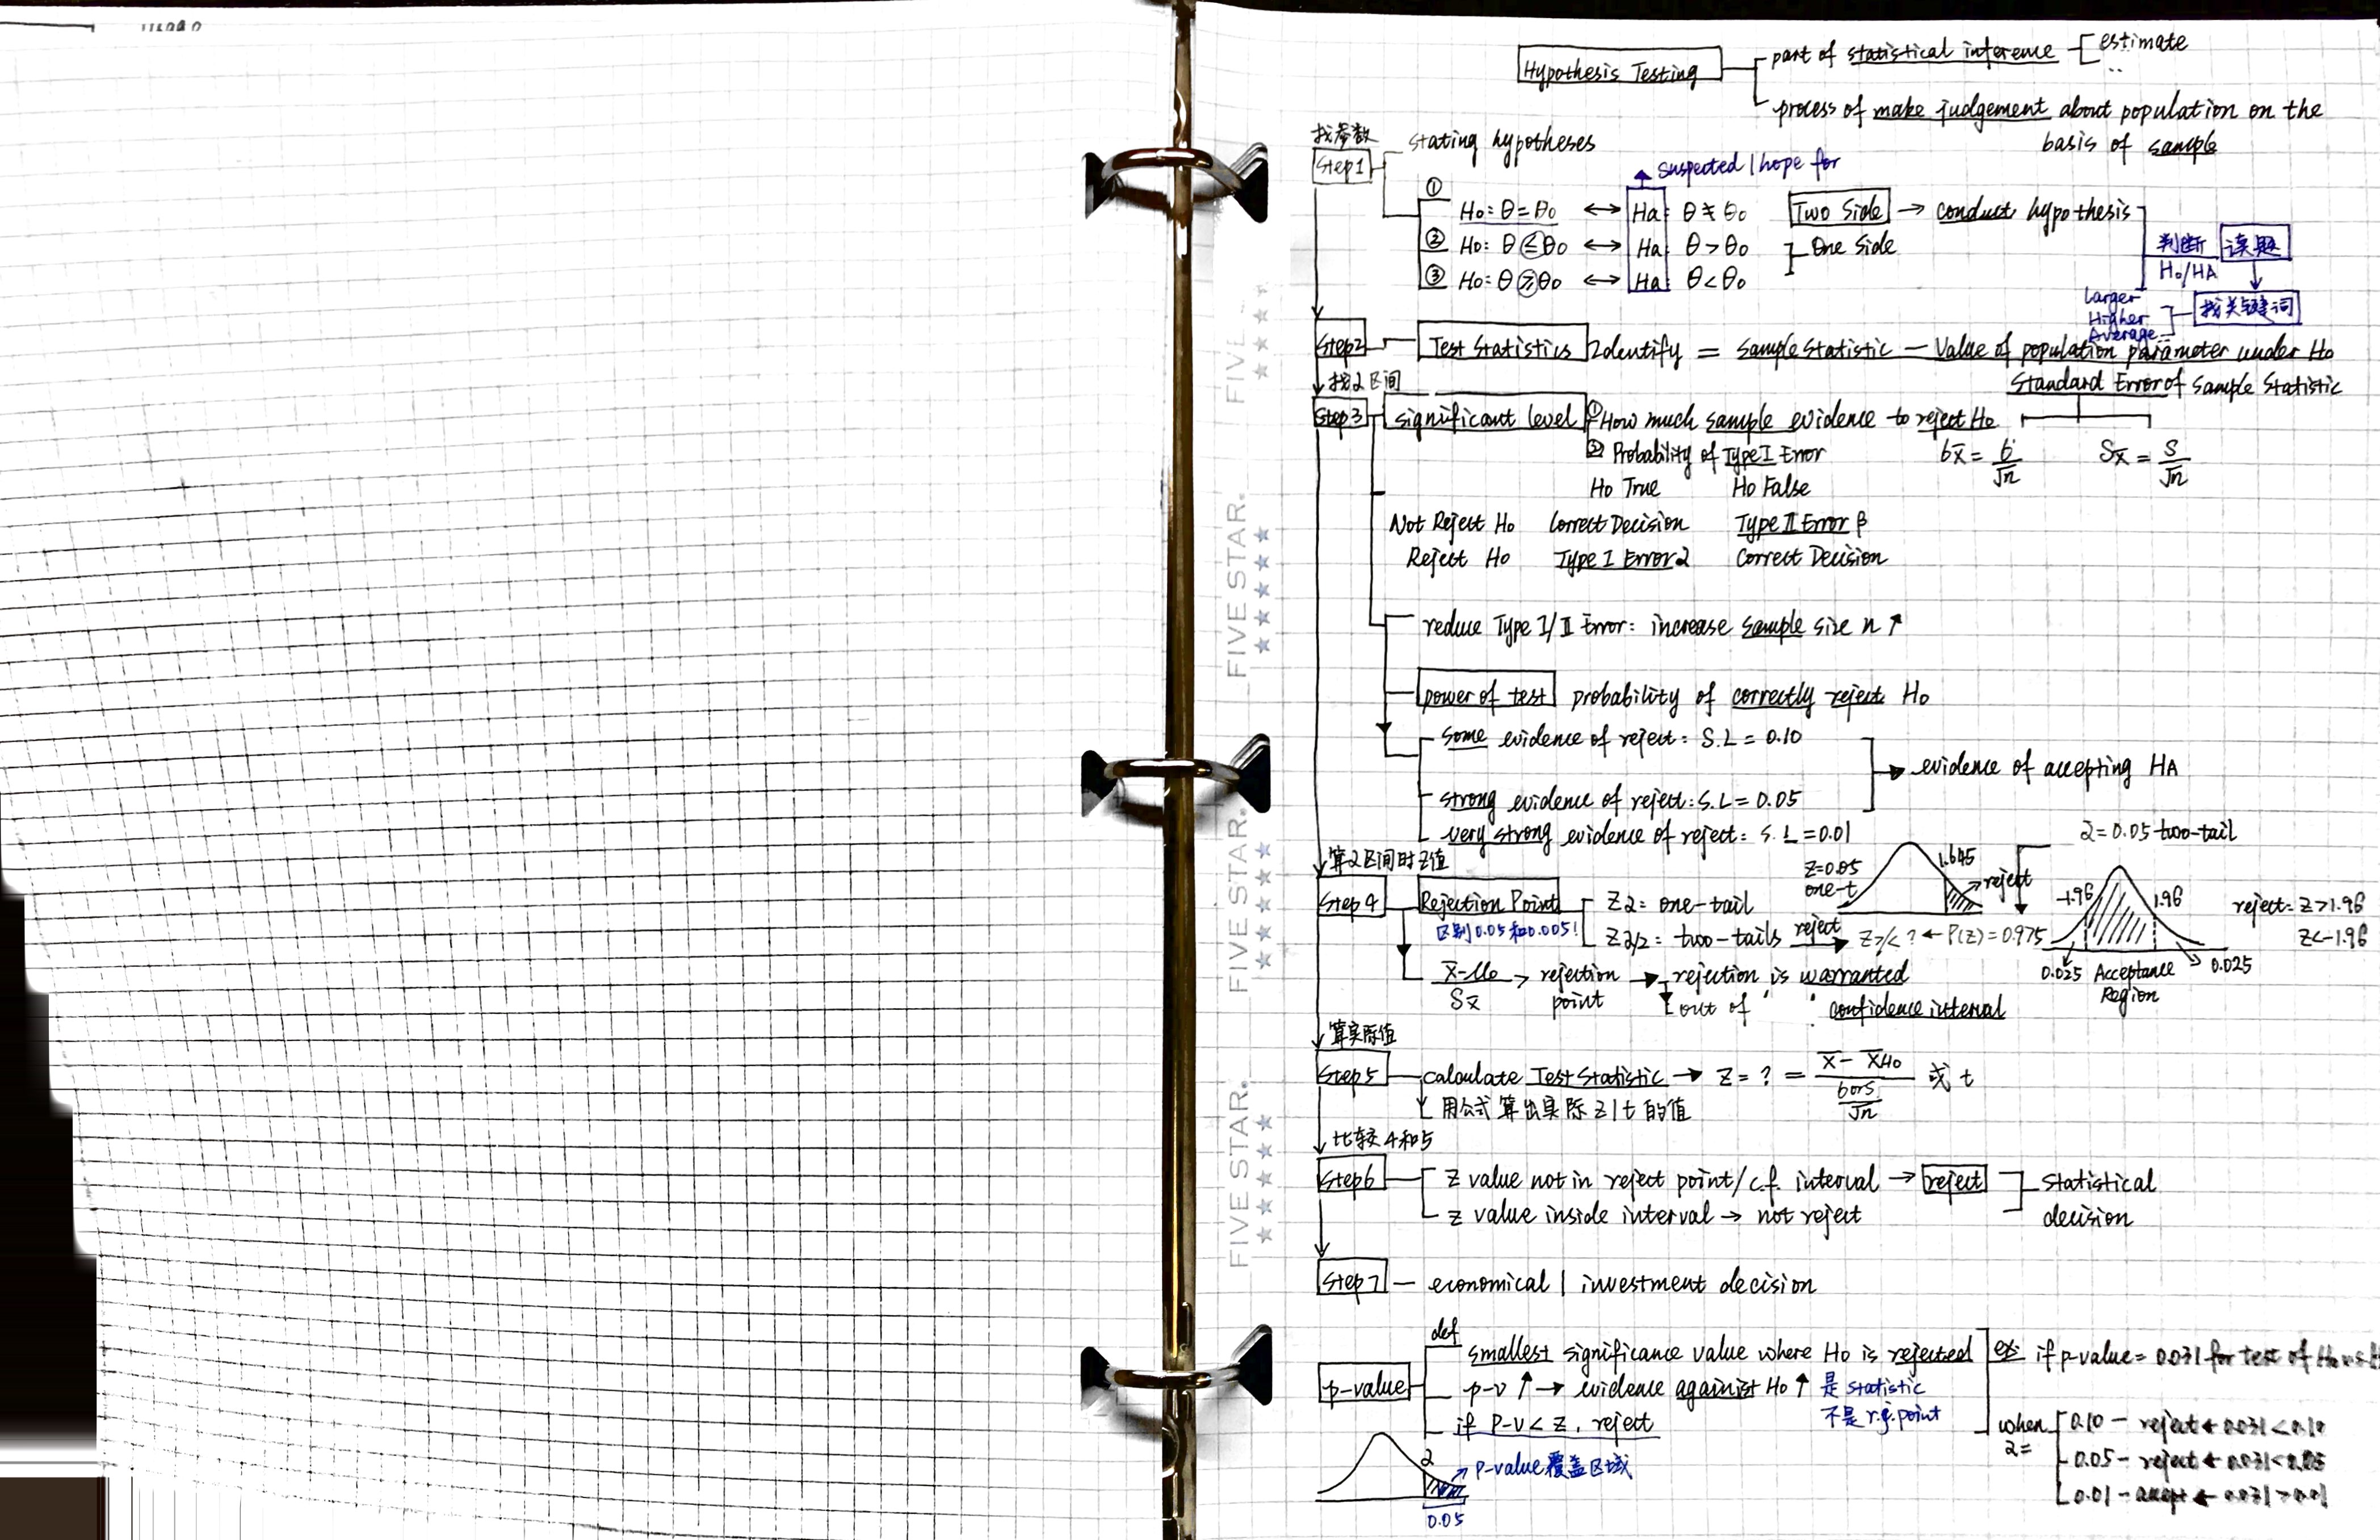 Hypothesis Testing
part of statistical inference
estimate
process of make judgement about population on the
basis of sample
找参数
Step1
stating hypotheses
suspected / hope for
① H₀: θ = θ₀ ↔ Ha: θ ≠ θ₀ Two Side → conduct hypothesis
② H₀: θ ≤ θ₀ ↔ Ha: θ > θ₀ One Side
③ H₀: θ ≥ θ₀ ↔ Ha: θ < θ₀
判断 读题
H₀/HA
找关键词
Larger
Higher
Average
Step2 Test Statistics Identify = Sample Statistic — Value of population parameter under H₀
Standard Error of Sample Statistic
σx̄ = σ/√n
Sx̄ = S/√n
找α区间
Step3 significant level ① How much sample evidence to reject H₀
② Probability of Type I Error
H₀ True H₀ False
Not Reject H₀ Correct Decision Type II Error β
Reject H₀ Type I Error α Correct Decision
reduce Type I/II Error: increase sample size n ↑
power of test probability of correctly reject H₀
some evidence of reject: S.L = 0.10
strong evidence of reject: S.L = 0.05
very strong evidence of reject: S.L = 0.01
→ evidence of accepting HA
算α区间时Z值
Step4 Rejection Point
区别0.05和0.005!
Zα = one-tail
Zα/2 = two-tails reject → Z>/<? ← P(Z) = 0.975
Z=0.05
one-t
1.645
reject
α = 0.05 two-tail
-1.96
1.96
reject: Z > 1.96
Z < -1.96
0.025 Acceptance
Region
0.025
x̄-μ₀
Sx̄
> rejection
point
→ rejection is warranted
out of ' ' confidence interval
算实际值
Step5 calculate Test Statistic → Z = ? = x̄ - x̄H₀ / (σ or S / √n) 或 t
用公式算出实际 Z/t 的值
比较4和5
Step6
Z value not in reject point/c.f. interval → reject
Z value inside interval → not reject
Statistical
decision
Step7 — economical / investment decision
p-value
def
smallest significance value where H₀ is rejected
p-v ↑ → evidence against H₀ ↑
是 statistic
不是 r.j. point
if P-V < Z, reject
α
P-value覆盖区域
0.05
ex: if p-value = 0.031 for test of
when
α=
0.10 — reject ← 0.031 < 0.10
0.05 — reject ← 0.031 < 0.05
0.01 — accept ← 0.031 > 0.01
FIVE STAR.
FIVE STAR.
FIVE STAR.
FIVE